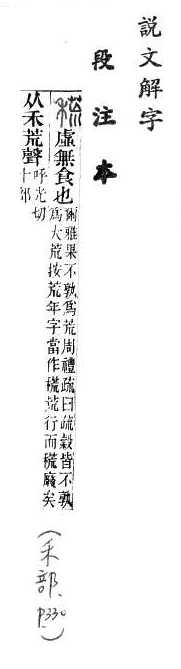 說文解字
段注本
䅣虛無食也
爾雅果不孰爲荒周禮疏曰疏穀皆不孰
爲大荒按荒年字當作䅣荒行而䅣廢矣
从禾荒聲
呼光切
十部
(禾部、P330)